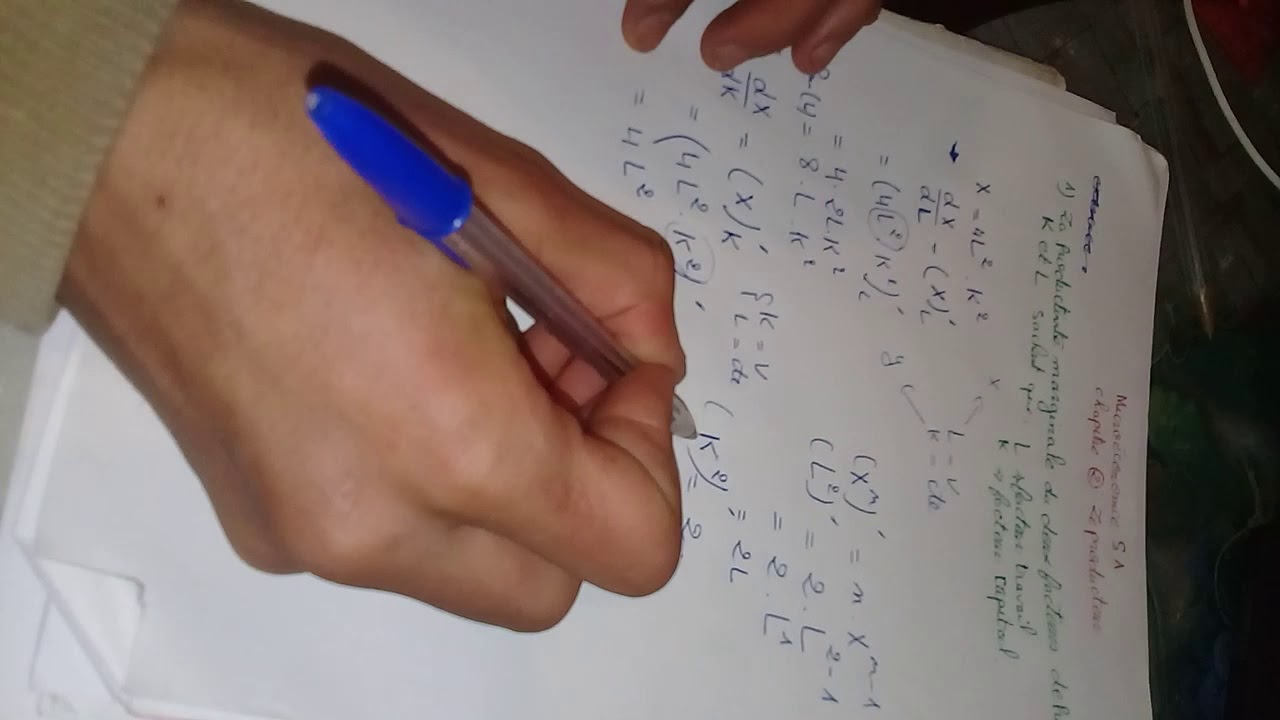 Microéconomie S1
chapitre ② Le producteur
1) La Productivité marginale des deux facteurs de
K et L sachant que L → facteur travail
K → facteur capital
X = 4L² . K²
→ dX/dL = (X)'L
L = V
K = cte
= (4L² K²)'L
= 4 . 2L K²
= 8 . L . K²
(Xⁿ)' = n . Xⁿ⁻¹
(L²)' = 2 . L²⁻¹
= 2 . L¹
= 2L
dX/dK = (X)'K { K = V
L = cte
= (4L² . K²)'
(K²)' = 2
= 4L²